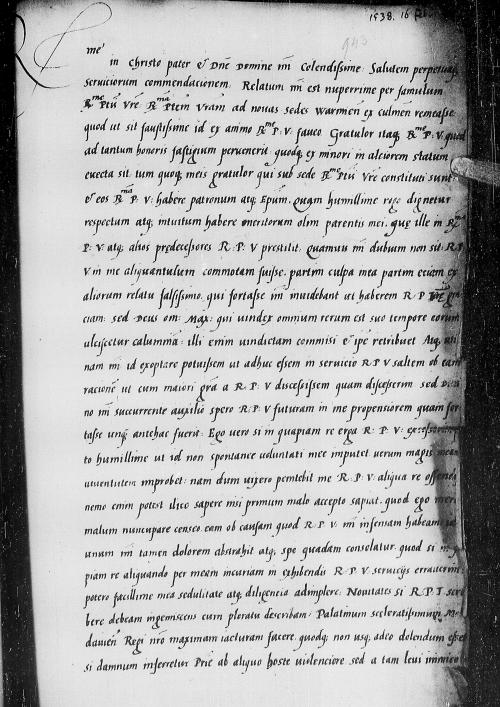 1538. 16
943
me
in christo pater et Dne Domine mi Colendissime Salutem perpetuam
serviciorum commendacionem. Relatum mi est nuperrime per famulum
Rme Ptis Vre: Rma Ptem Vram ad novas sedes Warmen ex culmen remeasse
quod ut sit faustissime id ex animo Rme P: V: faveo Gratulor itaq Rme P: V: quod
ad tantum honoris fastigium pervenerit: quodq ex minori in alciorem statum
evecta sit. tum quoq meis gratulor qui sub sede Rme Ptis Vre constituti sunt
et eos Rma P: V: habere patronum atq Epum. Quam humillime rogo dignetur
respectum atq intuitum habere meritorum olim parentis mei. que ille in
P: V: atq alios predecessores R: P: V prestitit. Quamvis mi dubium non sit: R: P:
V in me aliquantulum commotam fuisse. partim culpa mea partim eciam ex
aliorum relatu falsissimo. qui fortasse mi invidebant ut haberem R: P
ciam: sed Deus om: Max: qui vindex omnium rerum est suo tempore eorum
ulciscetur calumnia: illi enim vindictam commisi et ipse retribuet Atq
nam mi id exoptare potuissem ut adhuc essem in servicio R P V saltem ob eam
racione ut cum maiori gra a R: P: V discessissem quam discesserim sed
no mi succurrente auxilio spero R: P: V futuram in me propensiorem quam for
tasse unq antehac fuerit: Ego vero si in quapiam re erga R: P: V:
to humillime ut id non spontanee voluntati mee imputet verum magis
iuventutem improbet: nam dum vixero penitebit me R: P: V aliqua re
nemo enim potest ilico sapere nisi primum malo accepto sapiat. quod ego
malum nuncupare censeo eam ob causam quod R: P: V: mi infensam habeam
unum mi tamen dolorem abstrahit atq spe quadam consolatur quod si
piam re aliquando per meam incuriam in exhibendis R: P: V servicijs erraverim
potero facillime mea sedulitate atq diligencia adimplere. Novitates si R: P: T scri
bere debeam ingemiscens cum ploratu describam: Palatinum sceleratissimum
davien Regi nro maximam iacturam facere. quodq non usq adeo dolendum esset
si damnum inferretur Prie ab aliquo hoste violenciore sed a tam levi